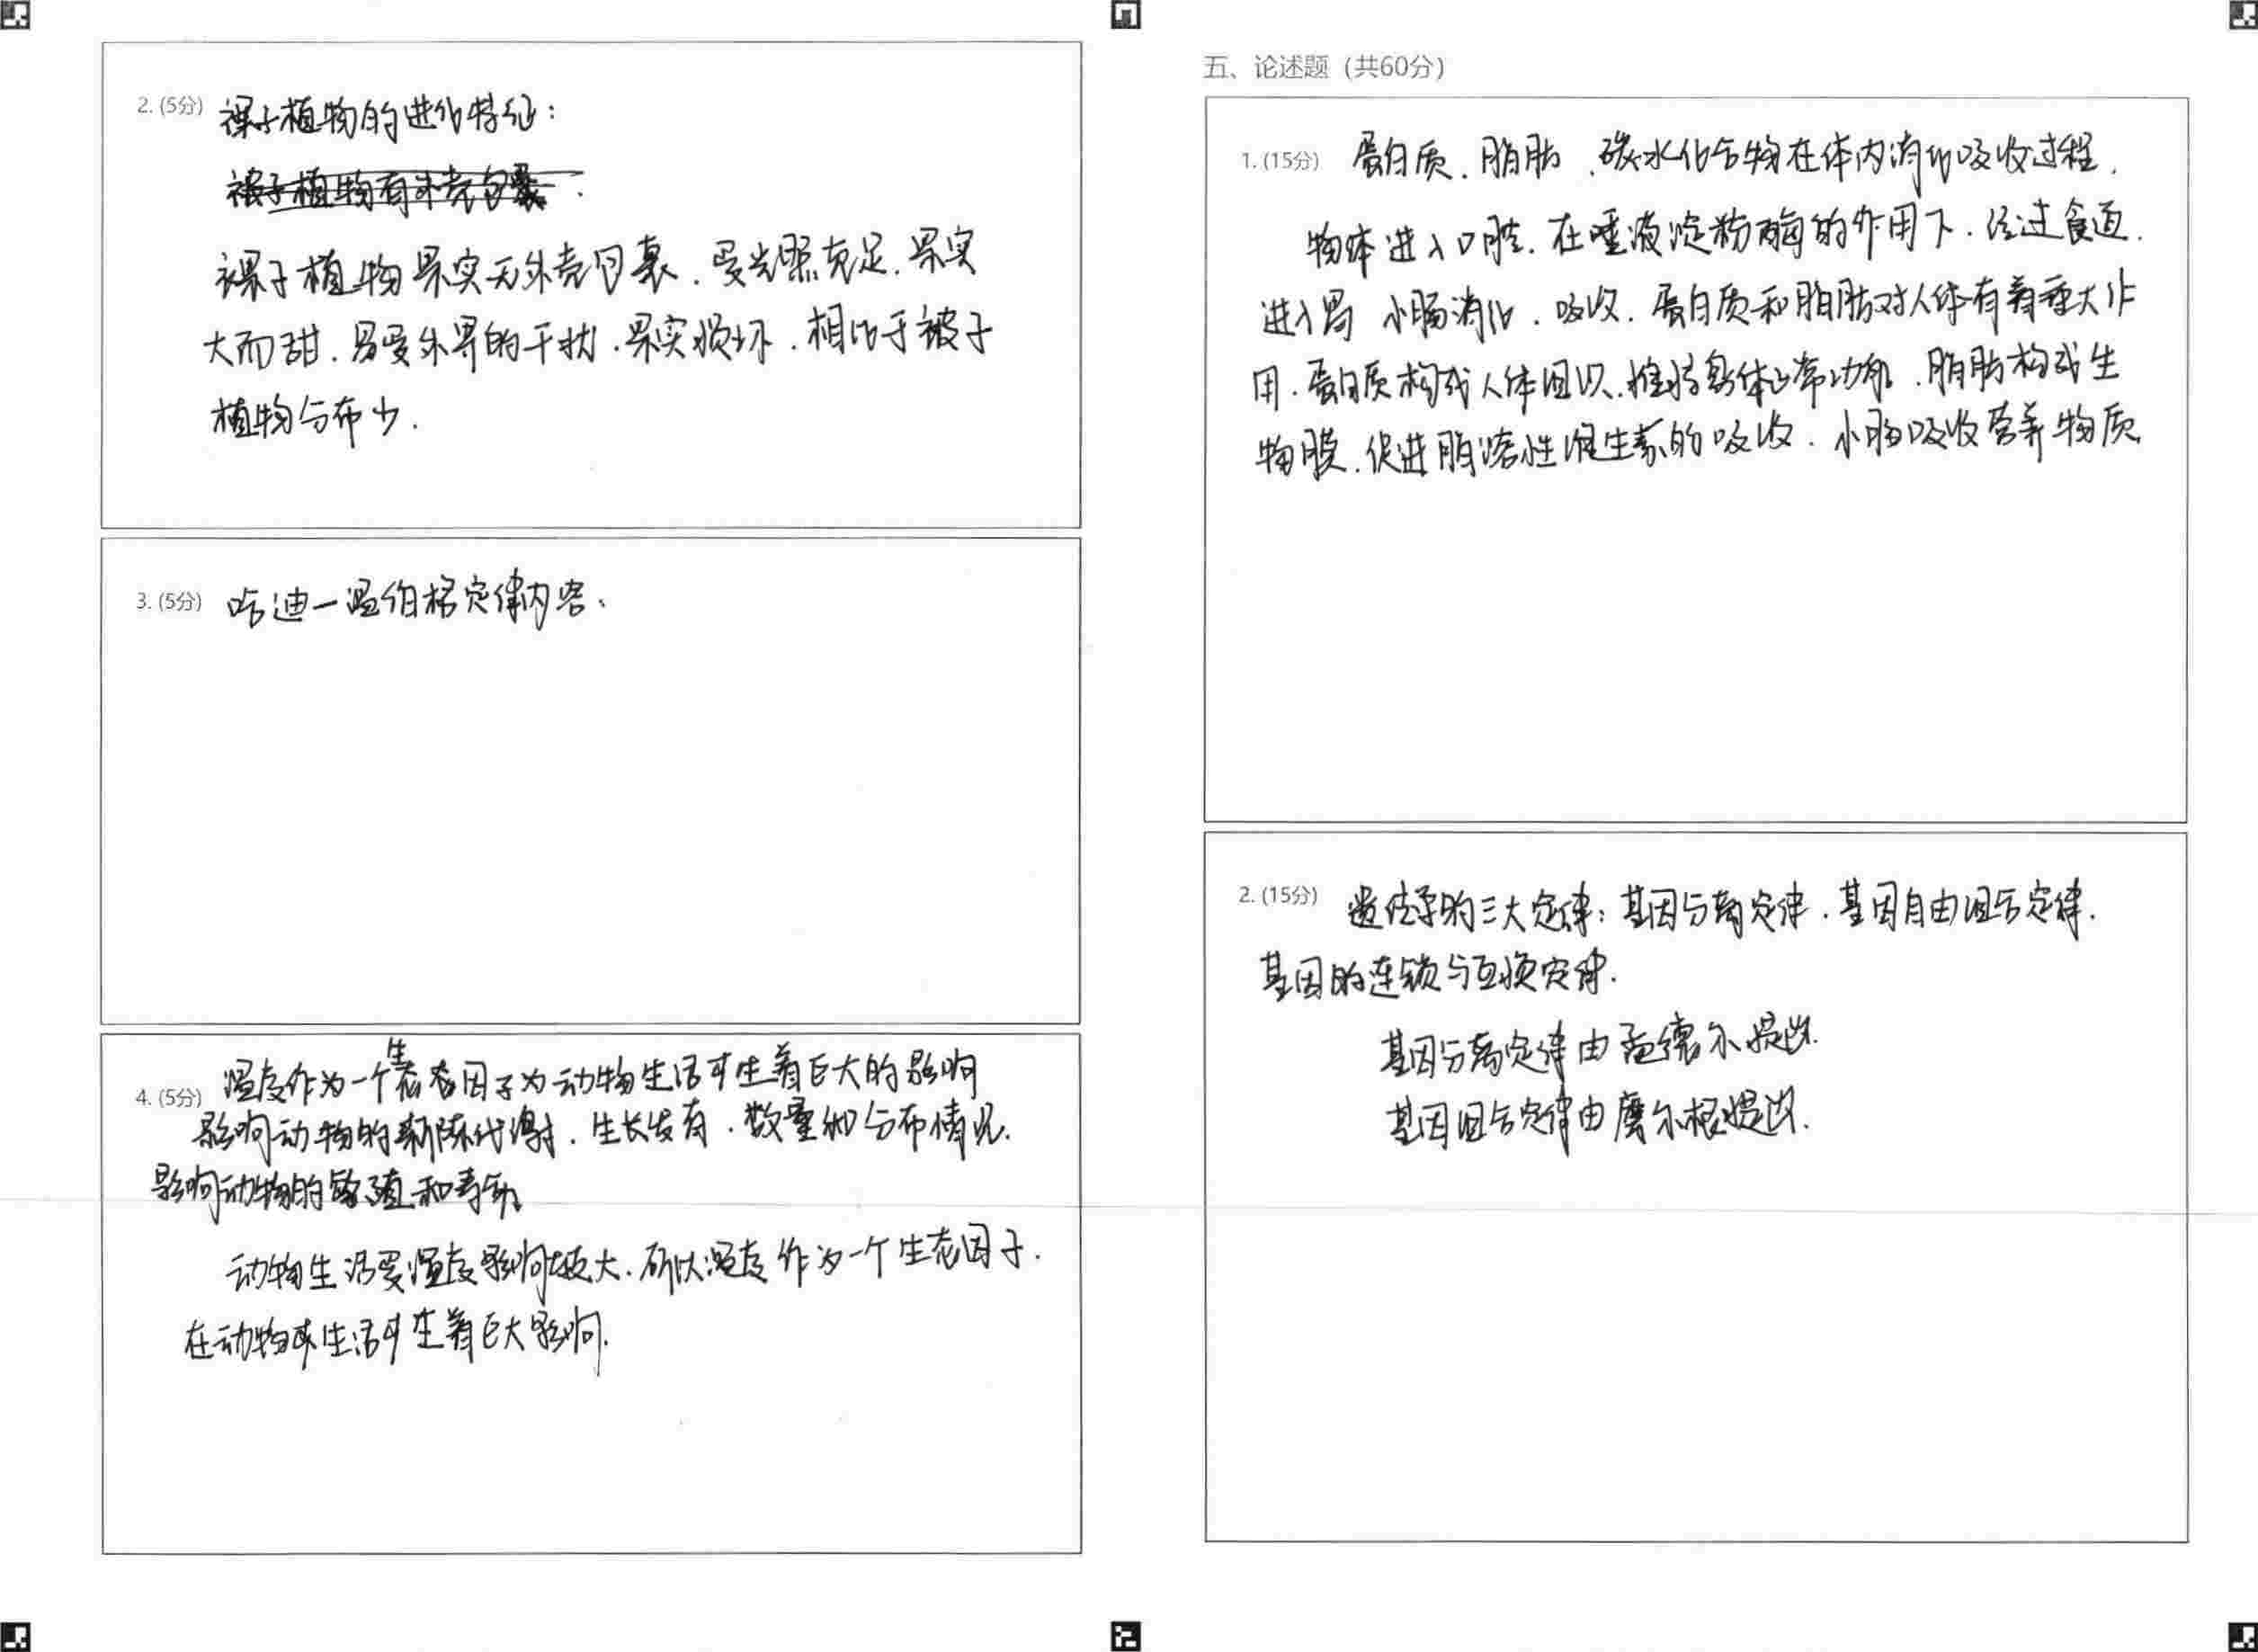 2. (5分) 裸子植物的进化特征：
被子植物有外壳包裹.
裸子植物果实无外壳包裹. 受光照充足. 果实
大而甜. 易受外界的干扰. 果实损坏. 相比于被子
植物分布少.
3. (5分) 哈迪一温伯格定律内容、
4. (5分) 温度作为一个生态因子为动物生活产生着巨大的影响
影响动物的新陈代谢. 生长发育. 数量和分布情况.
影响动物的繁殖和寿命.
动物生活受温度影响极大. 所以温度作为一个生态因子.
在动物生活产生着巨大影响.
五、论述题（共60分）
1. (15分) 蛋白质. 脂肪. 碳水化合物在体内消化吸收过程.
物体进入口腔. 在唾液淀粉酶的作用下. 经过食道.
进入胃 小肠消化. 吸收. 蛋白质和脂肪对人体有着重大作
用. 蛋白质构成人体组织. 维持身体正常功能. 脂肪构成生
物膜. 促进脂溶性维生素的吸收. 小肠吸收营养物质.
2. (15分) 遗传学的三大定律：基因分离定律. 基因自由组合定律.
基因的连锁与互换定律.
基因分离定律由孟德尔提出.
基因组合定律由摩尔根提出.